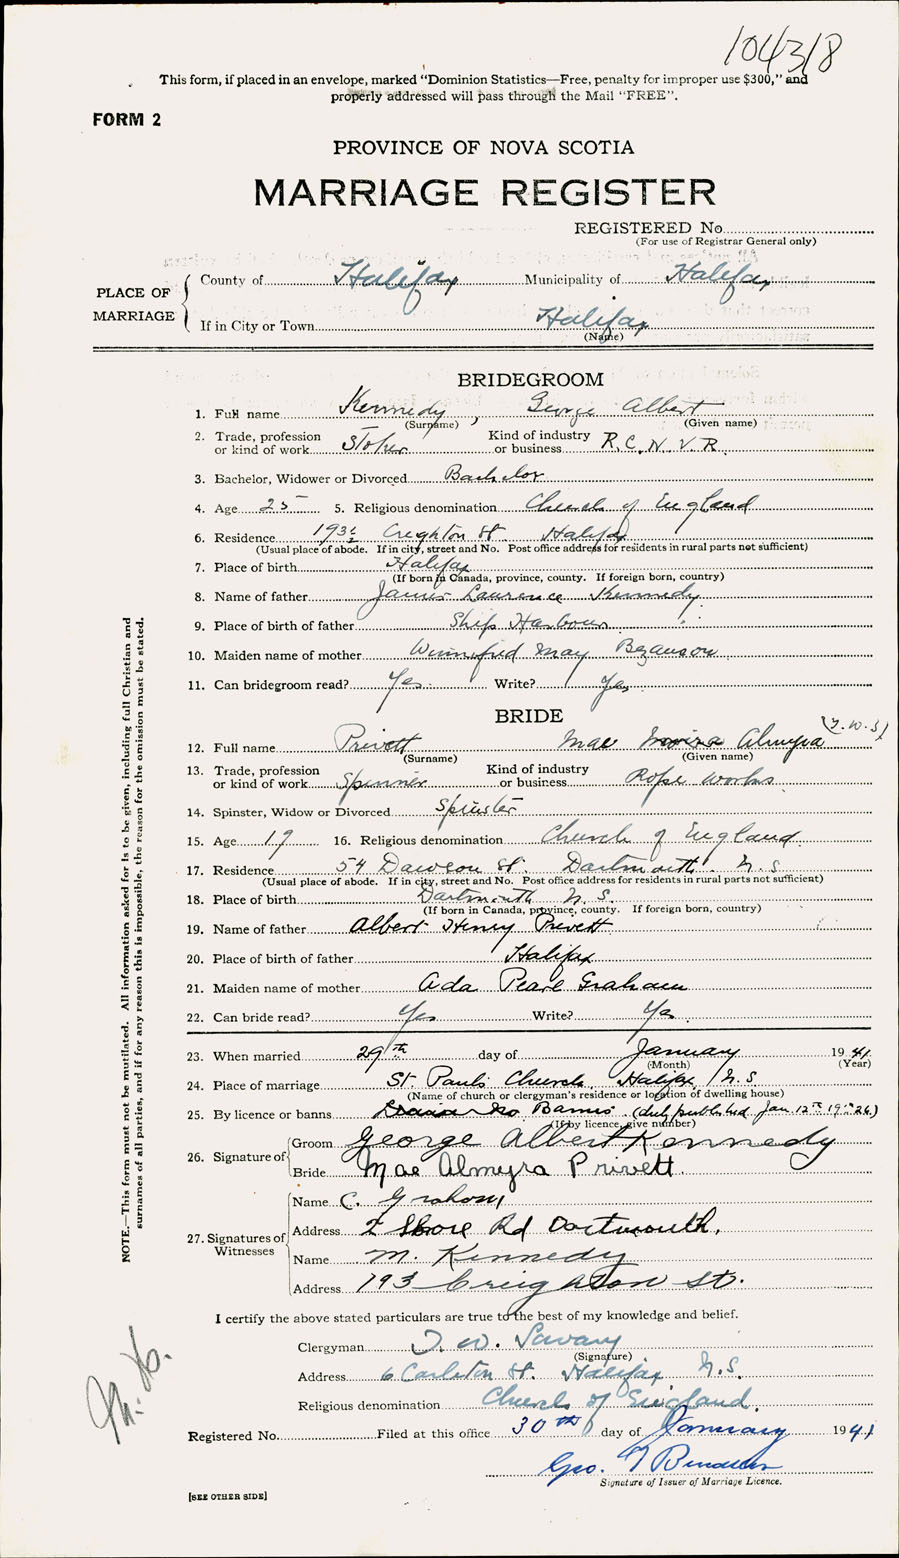 104318
This form, if placed in an envelope, marked "Dominion Statistics—Free, penalty for improper use $300," and
properly addressed will pass through the Mail "FREE".
FORM 2
PROVINCE OF NOVA SCOTIA
MARRIAGE REGISTER
REGISTERED No.
(For use of Registrar General only)
PLACE OF MARRIAGE
County of Halifax Municipality of Halifax
If in City or Town Halifax
(Name)
BRIDEGROOM
1. Full name Kennedy, George Albert
(Surname) (Given name)
2. Trade, profession or kind of work Stoker Kind of industry or business R.C.N.V.R.
3. Bachelor, Widower or Divorced Bachelor
4. Age 25 5. Religious denomination Church of England
6. Residence 193½ Creighton St. Halifax
(Usual place of abode. If in city, street and No. Post office address for residents in rural parts not sufficient)
7. Place of birth Halifax
(If born in Canada, province, county. If foreign born, country)
8. Name of father James Laurence Kennedy
9. Place of birth of father Ship Harbour
10. Maiden name of mother Winnifred May Bezanson
11. Can bridegroom read? Yes Write? Yes
BRIDE
12. Full name Privett Mae Almyra (T.W.S)
(Surname) (Given name)
13. Trade, profession or kind of work Spinner Kind of industry or business Rope Works
14. Spinster, Widow or Divorced Spinster
15. Age 19 16. Religious denomination Church of England
17. Residence 54 Dawson St. Dartmouth N.S.
(Usual place of abode. If in city, street and No. Post office address for residents in rural parts not sufficient)
18. Place of birth Dartmouth N.S.
(If born in Canada, province, county. If foreign born, country)
19. Name of father Albert Henry Privett
20. Place of birth of father Halifax
21. Maiden name of mother Ada Pearl Graham
22. Can bride read? Yes Write? Yes
23. When married 29th day of January 1941
(Month) (Year)
24. Place of marriage St. Paul's Church, Halifax, N.S
(Name of church or clergyman's residence or location of dwelling house)
25. By licence or banns Banns (duly published Jan. 12th 19th 26)
(If by licence, give number)
26. Signature of Groom George Albert Kennedy
Bride Mae Almeyra Privett
27. Signatures of Witnesses
Name C. Graham
Address 2 Shore Rd Dartmouth.
Name M. Kennedy
Address 193 Creighton St.
I certify the above stated particulars are true to the best of my knowledge and belief.
Clergyman T. W. Savary
(Signature)
Address 6 Carleton St. Halifax N.S.
Religious denomination Church of England.
Registered No. Filed at this office 30th day of January 1941
Geo.
Signature of Issuer of Marriage Licence.
[SEE OTHER SIDE]
NOTE.—This form must not be mutilated. All information asked for is to be given, including full Christian and
surnames of all parties, and if for any reason this is impossible, the reason for the omission must be stated.